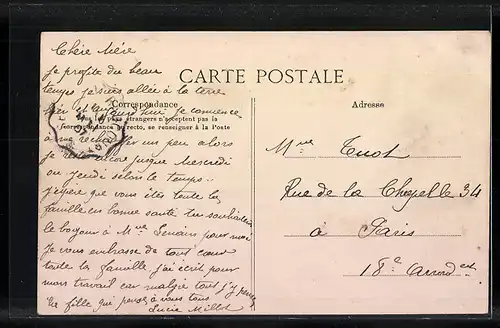 Chère Mère
je profite du beau
temps je suis allée à la terre
hier et aujourd'hui je comence
à me rechauffer un peu alors
je reste alors jusque Mercredi
ou Jeudi selon le temps.
J'éspère que vous êtes toute la
famille en bonne santé tu souhaiteras
le bonjour à Mme pour moi
Je vous embrasse de tout cœur
toute la famille j'ai écrit pour
mon travail car malgré tout j'y pense
Ta fille qui pense à vous tous
Lucie Millot
CARTE POSTALE
Correspondance
Tous les pays étrangers n'acceptent pas la
correspondance au recto, se renseigner à la Poste
Adresse
Mme Tuot
Rue de la Chapelle 34
à Paris
18e Arrondist